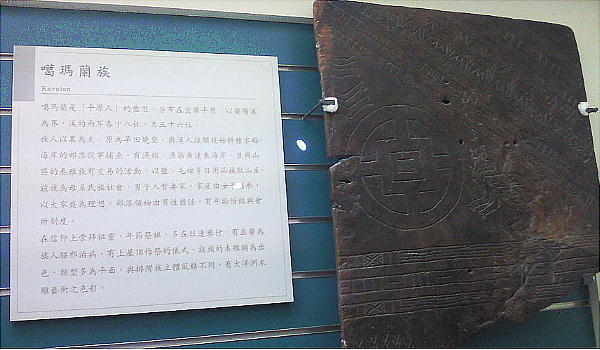 噶瑪蘭族
Kavalan
噶瑪蘭是「平原人」的意思，分布在宜蘭平原，以蘭陽溪
為界，溪的兩岸各十八社，共三十六社。
族人以農為主，原為旱田燒墾，與漢人接觸後始耕種水稻，
海岸的部落從事捕魚，有漁船，漁區廣達東海岸，並與山
區的泰雅族有交易的活動，以鹽、毛線等日用品換取山產。
該族為母系氏族社會，男子入贅妻家，家產由女承，
以大家庭為理想，部落領袖由男性擔任，有年齡階級與會
所制度。
在信仰上崇拜祖靈，年節祭祖，多在社邊舉行，有巫醫為
族人驅邪治病，有上屋頂作祭的儀式。該族的木雕頗為出
色，類型多為平面，與排灣族立體風格不同，有大洋洲木
雕藝術之色彩。